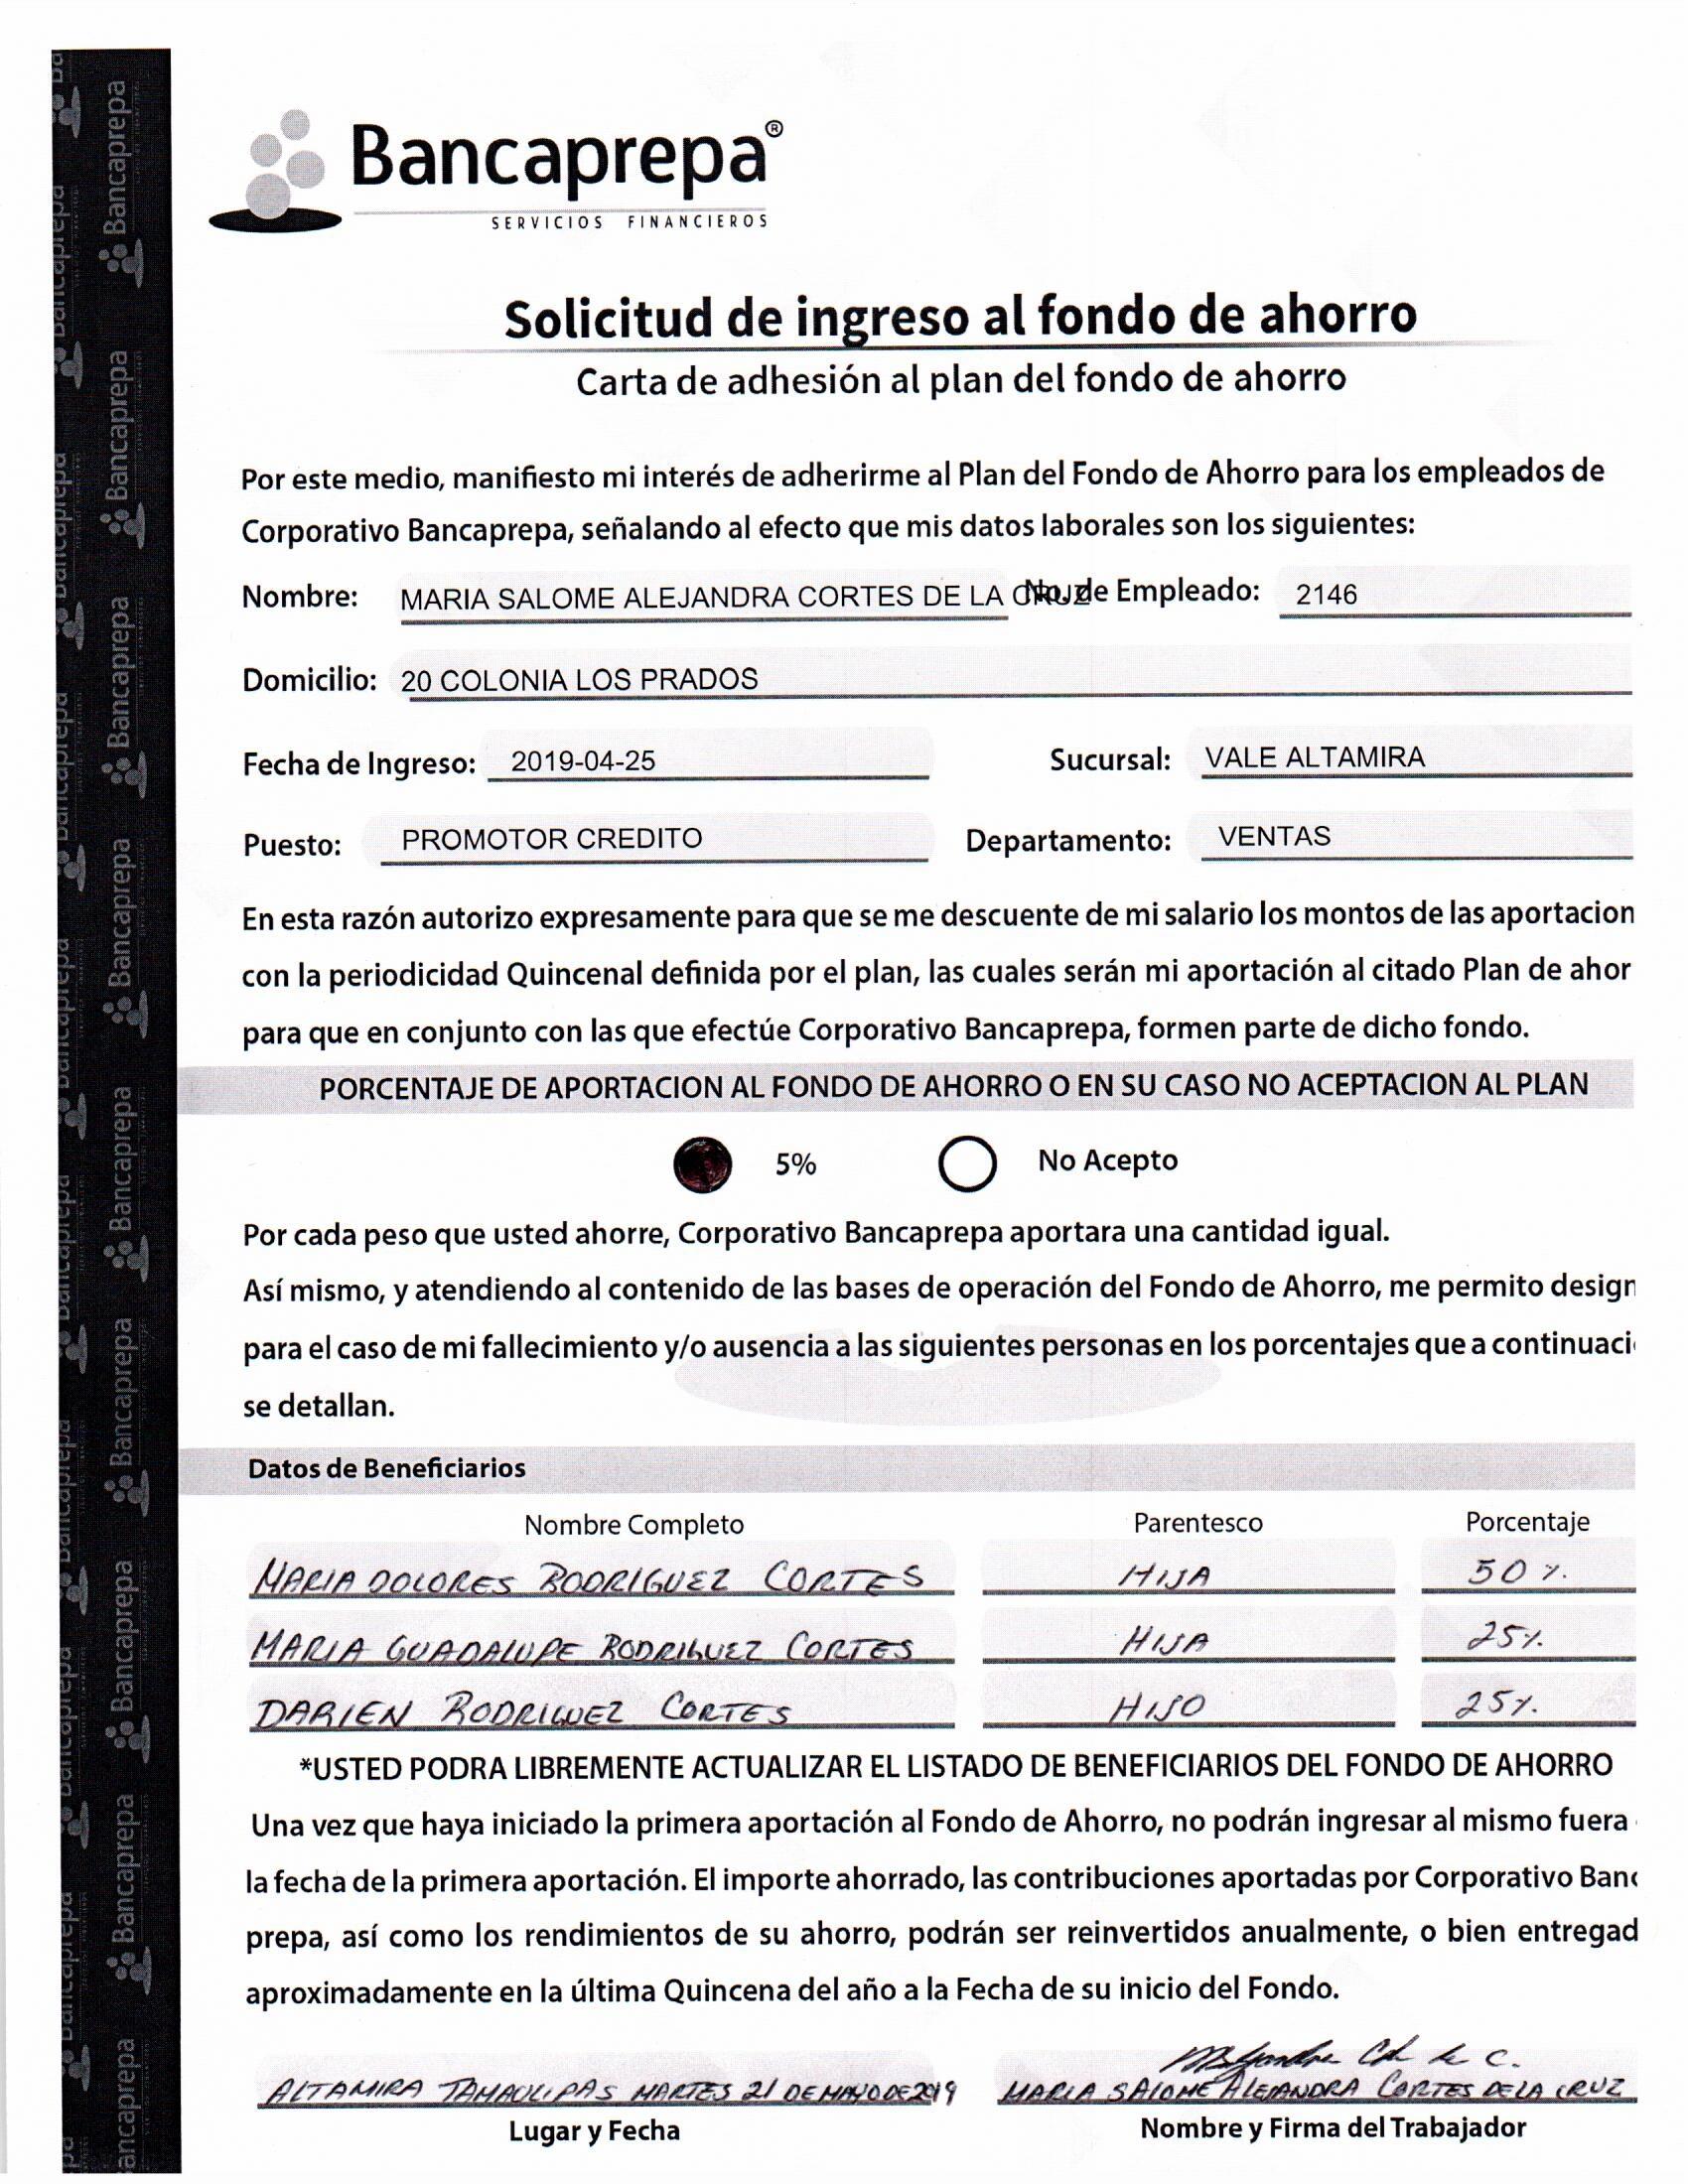 Bancaprepa®
SERVICIOS FINANCIEROS
Solicitud de ingreso al fondo de ahorro
Carta de adhesión al plan del fondo de ahorro
Por este medio, manifiesto mi interés de adherirme al Plan del Fondo de Ahorro para los empleados de
Corporativo Bancaprepa, señalando al efecto que mis datos laborales son los siguientes:
Nombre: MARIA SALOME ALEJANDRA CORTES DE LA CRUZ No. de Empleado: 2146
Domicilio: 20 COLONIA LOS PRADOS
Fecha de Ingreso: 2019-04-25 Sucursal: VALE ALTAMIRA
Puesto: PROMOTOR CREDITO Departamento: VENTAS
En esta razón autorizo expresamente para que se me descuente de mi salario los montos de las aportacion
con la periodicidad Quincenal definida por el plan, las cuales serán mi aportación al citado Plan de ahor
para que en conjunto con las que efectúe Corporativo Bancaprepa, formen parte de dicho fondo.
PORCENTAJE DE APORTACION AL FONDO DE AHORRO O EN SU CASO NO ACEPTACION AL PLAN
5% No Acepto
Por cada peso que usted ahorre, Corporativo Bancaprepa aportara una cantidad igual.
Así mismo, y atendiendo al contenido de las bases de operación del Fondo de Ahorro, me permito design
para el caso de mi fallecimiento y/o ausencia a las siguientes personas en los porcentajes que a continuaci
se detallan.
Datos de Beneficiarios
Nombre Completo Parentesco Porcentaje
MARIA DOLORES RODRIGUEZ CORTES HIJA 50 %.
MARIA GUADALUPE RODRIGUEZ CORTES HIJA 25%.
DARIEN RODRIGUEZ CORTES HIJO 25%.
*USTED PODRA LIBREMENTE ACTUALIZAR EL LISTADO DE BENEFICIARIOS DEL FONDO DE AHORRO
Una vez que haya iniciado la primera aportación al Fondo de Ahorro, no podrán ingresar al mismo fuera
la fecha de la primera aportación. El importe ahorrado, las contribuciones aportadas por Corporativo Banc
prepa, así como los rendimientos de su ahorro, podrán ser reinvertidos anualmente, o bien entregad
aproximadamente en la última Quincena del año a la Fecha de su inicio del Fondo.
ALTAMIRA TAMAULIPAS MARTES 21 DE MAYO DE 2019 MARIA SALOME ALEJANDRA CORTES DE LA CRUZ
Lugar y Fecha Nombre y Firma del Trabajador